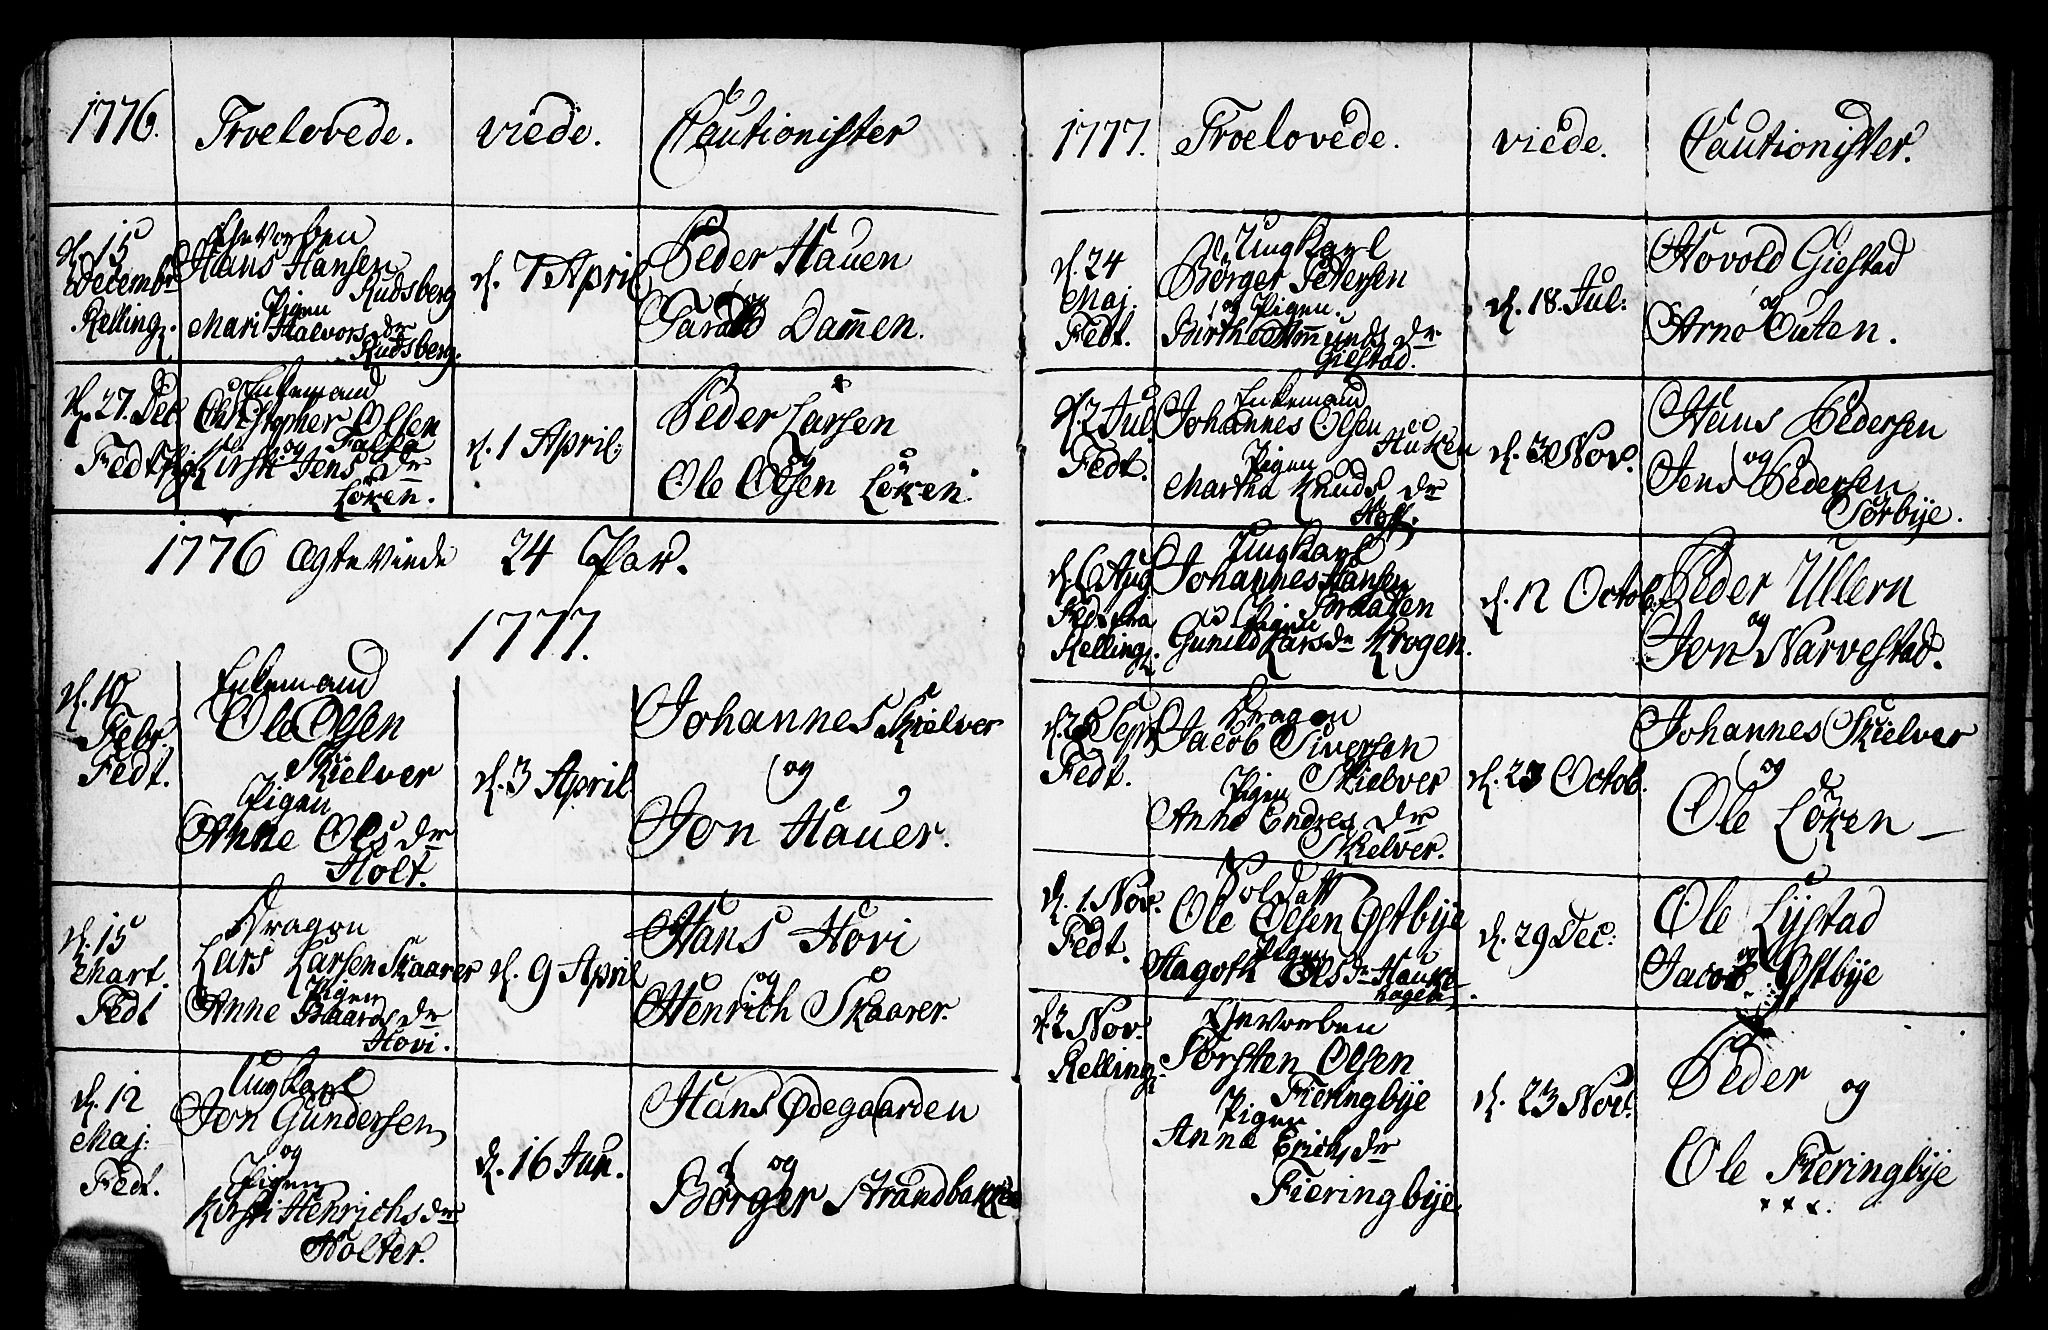 1776. Troelovede. viede. Cautionister
d. 15 Decembr Kelling.
Gevorben
Hans Hansen
Rudsberg
Pigen
Mari Halvors dr
Rudsberg.
d. 7 April
Peder Hauen
og
Dam̅en.
d. 27. Dec
Fedt
Enkemand
Christopher Olsen
og
Kirsti Jens dr
Løken.
d. 1 April:
Peder Larsen
Ole Olsen Løken.
1776 Ægteviede 24 Par.
1777.
d. 10
Febr.
Fedt.
Enkemand
Ole Olsen
Skielver
Pigen
Anne Ols dr
Holt.
d. 3 April
Johannes Skielver
og
Jon Hauer.
d. 15
Mart.
Fedt
Dragon
Lars Larsen Skaarer
Pigen
Anne Baards dr
Hovi.
d. 9 April
Hans Hovi
og
Henrich Skaarer.
d. 12
Maj:
Fedt.
Ungkarl
Jon Gundersen
og
Pigen
Kirsti Henrichs dr
Holter.
d. 16 Jun.
Hans Ødegaarden
og
Børger Strandbakken
1777. Troelovede. viede. Cautionister.
d. 24
Maj.
Fedt.
Ungkarl
Børger Petersen
og Pigen.
Birthe Am̅unds dr
Giestad.
d. 18. Jul:
Hovold Giestad
og
Arne Outen.
d. 2 Jul.
Fedt.
Enkemand
Johannes Olsen
Hucken
Pigen
Martha Knuds dr
Hoff.
d. 30 Nov.
Hans Pedersen
og
Jens Pedersen
Sørbye.
d. 6 Aug
Fedt fra
Kelling.
Ungkarl
Johannes Hansen
Braaten
Pigen
Gunild Lars dr Krogen.
d. 12 Octob.
Peder Ullern
og
Jon Narvestad.
Sept
Fedt.
Dragon
Jacob Siversen
Skielver
Pigen
Anne Endres dr
Skielver.
d. 23 Octob.
Johannes Skielver
og
Ole Løken
d. 1. Nov.
Fedt.
Soldat
Ole Olsen Østbye
Pigen
Aagoth Ols dr Hauke-
hagen.
d. 29 Dec:
Ole Lystad
og
Jacob Østbye
d. 2 Nov.
Kelling.
Gevorben
Torsten Olsen
Fieringbye
Pigen
Anne Erichs dr
Fieringbye
d. 23 Nov.
Peder og
Ole Fieringbye